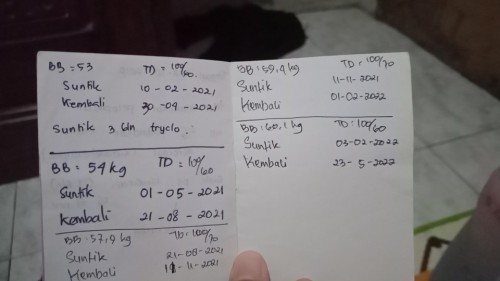 BB = 53 TD = 100/80
Suntik 10 - 02 - 2021
Kembali 30 - 04 - 2021
Suntik 3 bln tryclo.
BB = 54 kg TD = 100/60
Suntik 01 - 05 - 2021
Kembali 21 - 08 - 2021
BB = 57,9 kg TD = 100/70
Suntik 21 - 08 - 2021
Kembali 11 - 11 - 2021
BB : 59,4 kg TD : 100/70
Suntik 11 - 11 - 2021
Kembali 01 - 02 - 2022
BB : 60,1 kg TD : 100/60
Suntik 03 - 02 - 2022
Kembali 23 - 5 - 2022